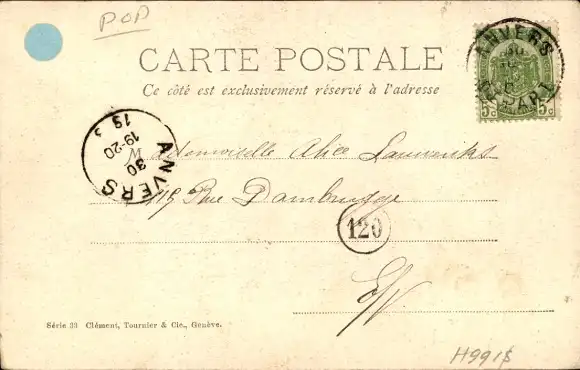 POP
CARTE POSTALE
Ce côté est exclusivement réservé à l'adresse
ANVERS
DÉPART
5c 5c
ANVERS
30
19-20
19
Mademoiselle Alice
115 Rue Dambrugge
120
E/V
Série 33 Clément, Tournier & Cie., Genève.
H991$